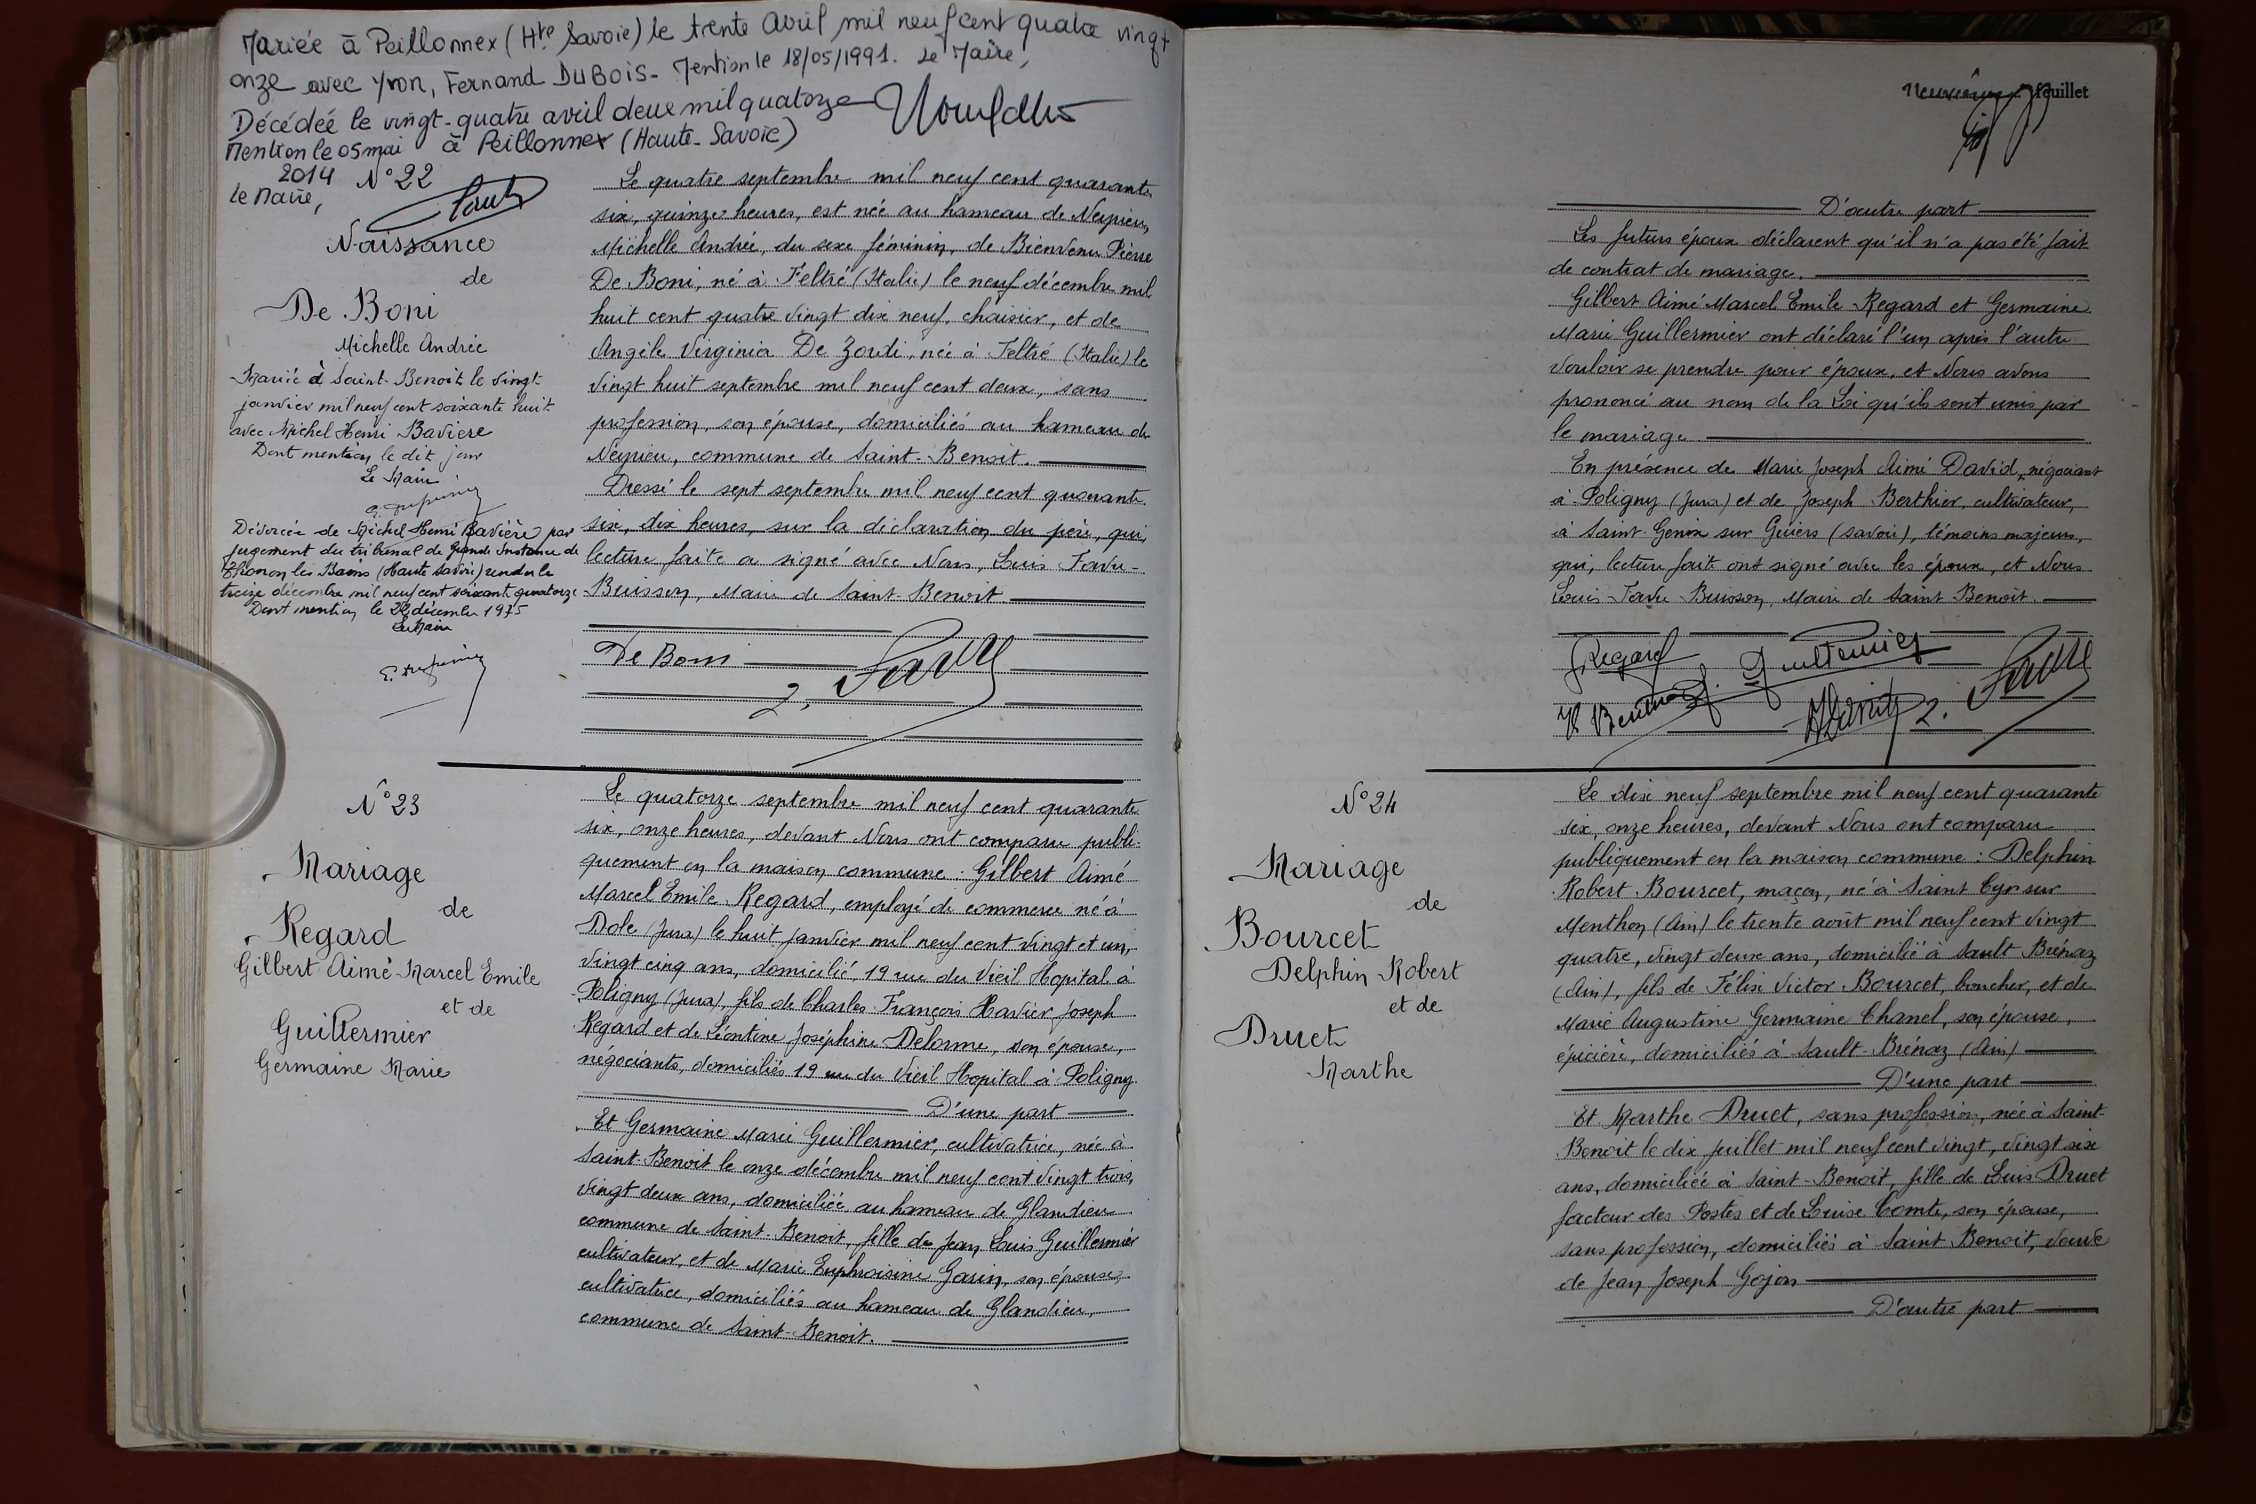 Mariée à Peillonnex (Hte Savoie) le trente Avril mil neuf cent quatre vingt
onze avec Yvon, Fernand DUBOIS - Mention le 18/05/1991. Le Maire,
Décédée le vingt-quatre avril deux mil quatorze
à Peillonnex (Haute-Savoie)
Mention le 05 mai
2014
Le Maire,
N° 22
Naissance
de
De Boni
Michelle Andrée
Marié à Saint-Benoit le vingt
janvier mil neuf cent soixante huit
avec Michel Henri Baviere
Dont mention le dit jour
Le Maire
Divorcée de Michel Henri Bavière par
jugement du tribunal de Grande Instance de
Thonon les Bains (Haute Savoie) rendu le
treize décembre mil neuf cent soixante quatorze
Dont mention le décembre 1975
Le Maire
Le quatre septembre mil neuf cent quarante
six, quinze heures, est née au hameau de Neyrieu,
Michelle Andrée, du sexe féminin, de Bienvenu Pierre
De Boni, né à Feltré (Italie) le neuf décembre mil
huit cent quatre vingt dix neuf, chaisier, et de
Angèle Virginia De Zordi, née à Feltré (Italie) le
vingt huit septembre mil neuf cent deux, sans
profession, son épouse, domiciliés au hameau de
Neyrieu, commune de Saint-Benoit.
Dressé le sept septembre mil neuf cent quarante
six, dix heures, sur la déclaration du père, qui,
lecture faite a signé avec Nous, Louis Favre-
Buisson, Maire de Saint-Benoit.
De Boni
L. Favre
N° 23
Mariage
de
Regard
Gilbert Aimé Marcel Emile
et de
Guillermier
Germaine Marie
Le quatorze septembre mil neuf cent quarante
six, onze heures, devant Nous ont comparu publi-
quement en la maison commune : Gilbert Aimé
Marcel Emile Regard, employé de commerce né à
Dole (Jura) le huit janvier mil neuf cent vingt et un,
vingt cinq ans, domicilié 19 rue du Vieil Hopital à
Poligny (Jura), fils de Charles François Xavier Joseph
Regard et de Léontine Joséphine Delorme, son épouse,
négociants, domiciliés 19 rue du Vieil Hopital à Poligny
D'une part
Et Germaine Marie Guillermier, cultivatrice, née à
Saint-Benoit le onze décembre mil neuf cent vingt trois,
vingt deux ans, domiciliée au hameau de Glandieu
commune de Saint-Benoit, fille de Jean Louis Guillermier
cultivateur, et de Marie Euphroisine Garin, son épouse,
cultivatrice, domiciliés au hameau de Glandieu,
commune de Saint-Benoit.
Neuvième feuillet
D'autre part
Les futurs époux déclarent qu'il n'a pas été fait
de contrat de mariage.
Gilbert Aimé Marcel Emile Regard et Germaine
Marie Guillermier ont déclaré l'un après l'autre
vouloir se prendre pour époux, et Nous avons
prononcé au nom de la Loi qu'ils sont unis par
le mariage.
En présence de Marie Joseph Aimé David, négociant
à Poligny (Jura) et de Joseph Berthier, cultivateur,
à Saint-Genix sur Guiers (Savoie), témoins majeurs,
qui, lecture faite ont signé avec les époux, et Nous
Louis Favre Buisson, Maire de Saint-Benoit.
Regard
G Guillermier
L. Favre
N° 24
Mariage
de
Bourcet
Delphin Robert
et de
Druet
Marthe
Le dix neuf septembre mil neuf cent quarante
six, onze heures, devant Nous ont comparu
publiquement en la maison commune : Delphin
Robert Bourcet, maçon, né à Saint Cyr sur
Menthon (Ain) le trente août mil neuf cent vingt
quatre, vingt deux ans, domicilié à Sault Brénaz
(Ain), fils de Félix Victor Bourcet, boucher, et de
Marie Augustine Germaine Chanel, son épouse,
épicière, domiciliés à Sault-Brénaz (Ain)
D'une part
Et Marthe Druet, sans profession, née à Saint-
Benoit le dix juillet mil neuf cent vingt, vingt six
ans, domiciliée à Saint-Benoit, fille de Louis Druet
facteur des Postes et de Louise Comte, son épouse,
sans profession, domiciliés à Saint Benoit, veuve
de Jean Joseph Gojon
D'autre part